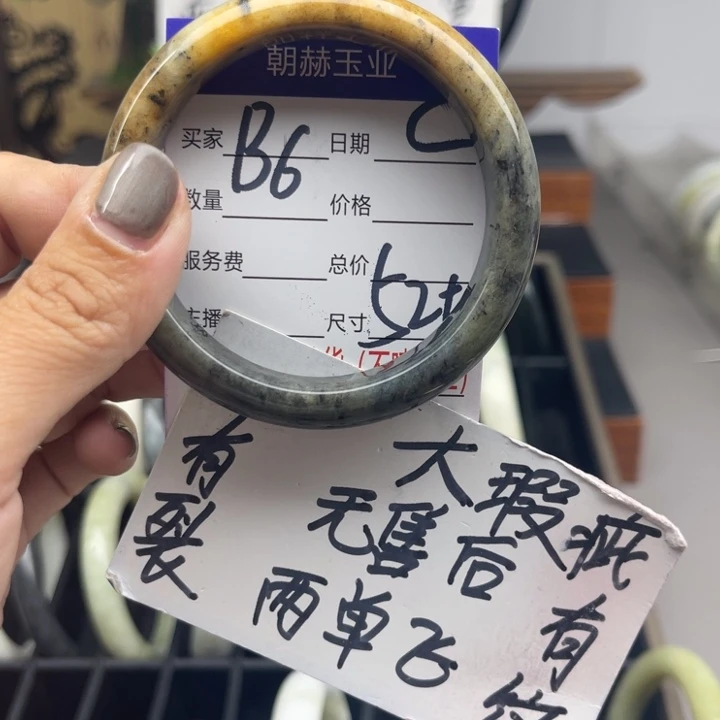 朝赫玉业
买家 B6 日期
数量 价格
服务费 总价
主播 尺寸 52+
有裂
大瑕疵
无售后
有
两单飞